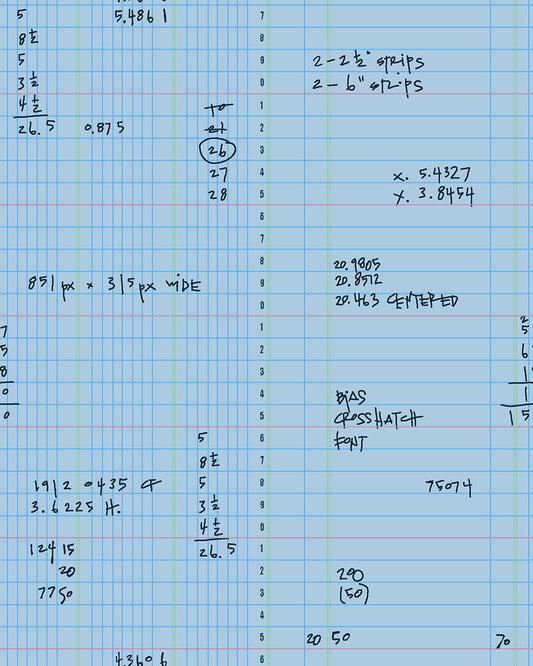 5.4861
5
8 1/2
5
3 1/2
4 1/2
26.5 0.875
10
21
26
27
28
7
8
9
0
1
2
3
4
5
6
7
8
9
0
1
2
3
4
5
6
7
8
9
0
1
2
3
4
5
6
2 - 2 1/2" STRIPS
2 - 6" STRIPS
X. 5.4327
Y. 3.8454
851 px x 315 px WIDE
20.9805
20.8512
20.463 CENTERED
7
5
8
0
0
2
5
6
1
1
1 5
BIAS
CROSSHATCH
FONT
5
8 1/2
5
3 1/2
4 1/2
26.5
1912 0435 CF
3.6225 H.
75074
12415
20
7750
200
(50)
20 50
70
4.3606